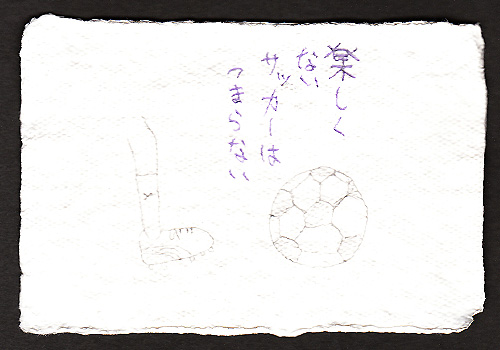 楽しく
ない
サッカーは
つまらない